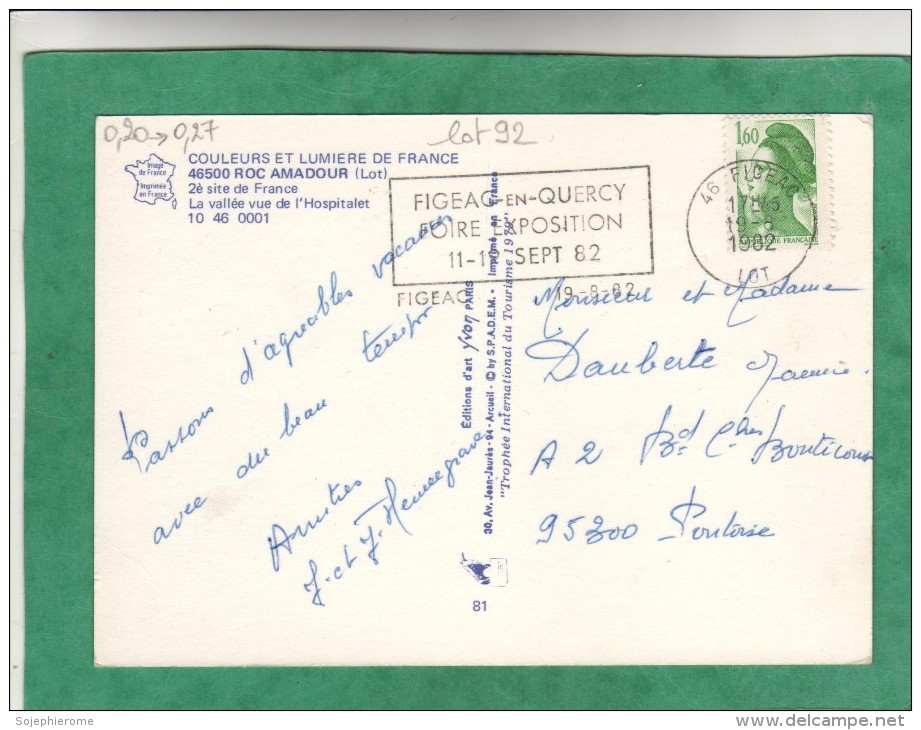 0,20→0,27
lot 92
Image
de France
Imprimée
en France
COULEURS ET LUMIERE DE FRANCE
46500 ROC AMADOUR (Lot)
2è site de France
La vallée vue de l'Hospitalet
10 46 0001
FIGEAC-EN-QUERCY
FOIRE EXPOSITION
SEPT 82
FIGEAC
19-8-82
1,60
RÉPUBLIQUE FRANÇAISE
46 FIGEAC
19-8
1982
LOT
Passons d'agréables vacances
avec du beau temps
Amitiés
J. et J.
Editions d'art Yvon PARIS
30, Av. Jean-Jaurès-94-Arcueil - © by S.P.A.D.E.M. • Imprimé en France
"Trophée International du Tourisme 1979"
81
Monsieur et Madame
Dauberte
A 2 Bd
95300 Pontoise
Sojephierome
www.delcampe.net